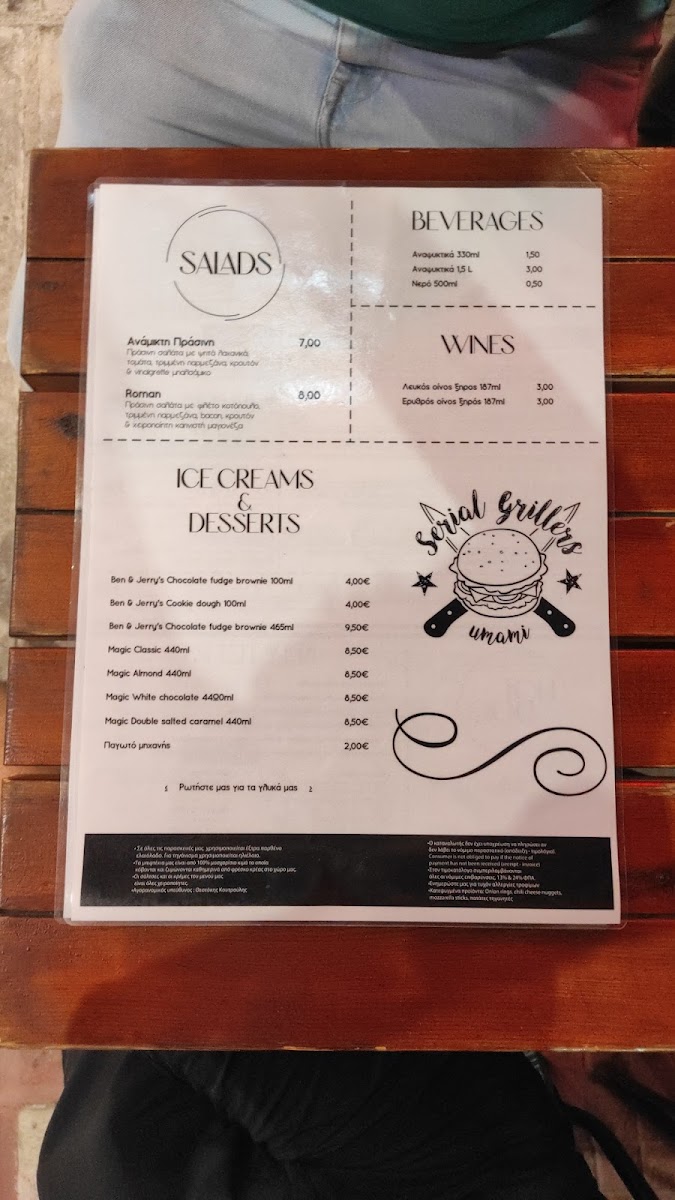 SALADS
Ανάμικτη Πράσινη 7,00
Πράσινη σαλάτα με ψητά λαχανικά,
τομάτα, τριμμένη παρμεζάνα, κρουτόν
& vinaigrette μπαλσάμικο
Roman 8,00
Πράσινη σαλάτα με φιλέτο κοτόπουλο,
τριμμένη παρμεζάνα, bacon, κρουτόν
& χειροποίητη καπνιστή μαγιονέζα
BEVERAGES
Αναψυκτικά 330ml 1,50
Αναψυκτικά 1,5 L 3,00
Νερό 500ml 0,50
WINES
Λευκός οίνος ξηρος 187ml 3,00
Ερυθρός οίνος ξηρός 187ml 3,00
ICE CREAMS
&
DESSERTS
Ben & Jerry's Chocolate fudge brownie 100ml 4,00€
Ben & Jerry's Cookie dough 100ml 4,00€
Ben & Jerry's Chocolate fudge brownie 465ml 9,50€
Magic Classic 440ml 8,50€
Magic Almond 440ml 8,50€
Magic White chocolate 44Ω0ml 8,50€
Magic Double salted caramel 440ml 8,50€
Παγωτό μηχανής 2,00€
Ρωτήστε μας για τα γλυκά μας
Serial Grillers
umami
• Σε όλες τις παρασκευές μας χρησιμοποιείται έξτρα παρθένο
ελαιόλαδο. Για τηγάνισμα χρησιμοποιείται ηλιέλαιο.
•Τα μπιφτέκια μας είναι από 100% μοσχαρίσιο κιμά το οποίο
κόβονται και ζυμώνονται καθημερινά από φρέσκο κρέας στο χώρο μας.
•Οι σάλτσες και οι κρέμες του μενού μας
είναι όλες χειροποίητες.
•Αγορανομικός υπεύθυνος :
•Ο καταναλωτής δεν έχει υποχρέωση να πληρώσει αν
δεν λάβει το νόμιμο παραστατικό (απόδειξη - τιμολόγιο).
Consumer is not obliged to pay if the notice of
payment has not been received (receipt - invoice)
•Στον τιμοκατάλογο συμπεριλαμβάνονται
όλες οι νόμιμες επιβαρύνσεις, 13% & 24% ΦΠΑ.
•Ενημερώστε μας για τυχόν αλλεργίες τροφίμων
•Κατεψυγμένα προϊόντα: Onion rings, chili cheese nuggets,
mozzarella sticks, πατάτες τηγανητές